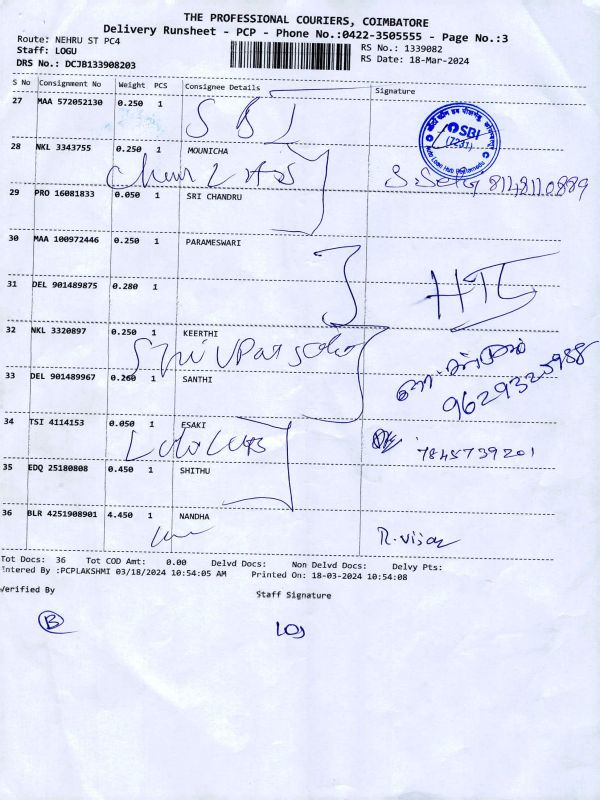 THE PROFESSIONAL COURIERS, COIMBATORE
Delivery Runsheet - PCP - Phone No.:0422-3505555 - Page No.:3
Route: NEHRU ST PC4 RS No.: 1339082
Staff: LOGU RS Date: 18-Mar-2024
DRS No.: DCJB133908203
S No Consignment No Weight PCS Consignee Details Signature
27 MAA 572052130 0.250 1 SBI
SBI
(7231)
28 NKL 3343755 0.250 1 MOUNICHA
8148110889
29 PRO 16081833 0.050 1 SRI CHANDRU
30 MAA 100972446 0.250 1 PARAMESWARI
31 DEL 901489875 0.280 1
32 NKL 3320897 0.250 1 KEERTHI
33 DEL 901489967 0.260 1 SANTHI
9629325988
34 TSI 4114153 0.050 1 ESAKI
7845739201
35 EDQ 25180808 0.450 1 SHITHU
36 BLR 4251908901 4.450 1 NANDHA
R. Vijay
Tot Docs: 36 Tot COD Amt: 0.00 Delvd Docs: Non Delvd Docs: Delvy Pts:
Entered By :PCPLAKSHMI 03/18/2024 10:54:05 AM Printed On: 18-03-2024 10:54:08
Verified By Staff Signature
B